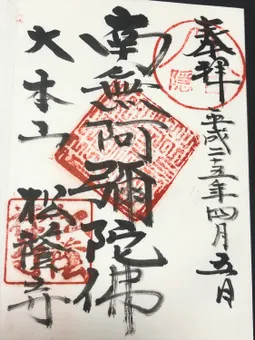 奉拝 平成二十五年四月五日
南無阿彌陀佛
大本山 松蔭寺